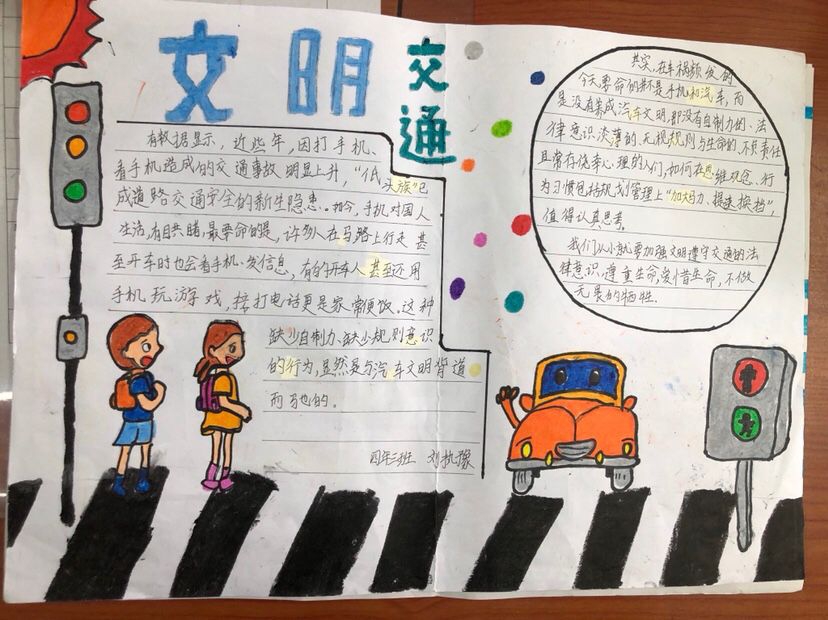 文明
交通
有数据显示，近些年，因打手机、
看手机造成的交通事故明显上升，“低头族”已
成道路交通安全的新生隐患。如今，手机对国人
生活，有目共睹，最要命的是，许多人在马路上行走甚
至开车时也会看手机、发信息，有的开车人甚至还用
手机玩游戏，接打电话更是家常便饭。这种
缺少自制力、缺少规则意识
的行为，显然是与汽车文明背道
而驰的。
四年三班 刘
其实，在车祸频发的
今天要命的并不是手机和汽车，而
是没有养成汽车文明，那没有自制力的、法
律意识淡薄的、无视规则与生命的、不负责任
且常存侥幸心理的人们，如何在思维观念、行
为习惯包括规划管理上“加大马力、提速换挡”，
值得认真思考。
我们从小就要加强文明遵守交通的法
律意识，尊重生命，爱惜生命，不做
无畏的牺牲。